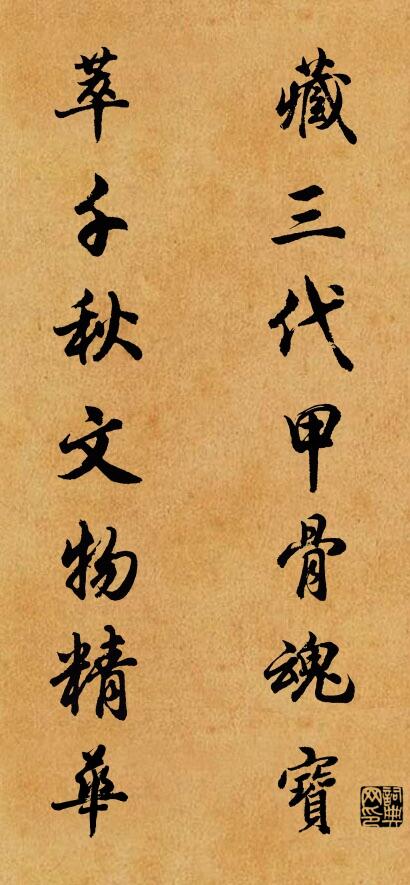 藏三代甲骨魂寶
萃千秋文物精華
詞典网印